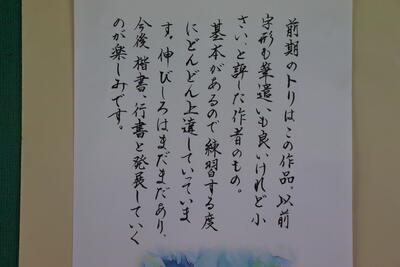 前期のトリはこの作品。以前
字形も筆遣いも良いけれど小
さい、と評した作者のもの。
基本があるので練習する度
にどんどん上達していっていま
す。伸びしろはまだまだあり、
今後楷書、行書と発展していく
のが楽しみです。